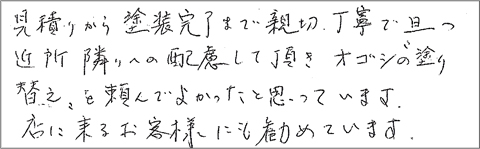 見積りから塗装完了まで親切、丁寧で且つ
近所隣りへの配慮して頂きオゴシの塗り
替え、を頼んでよかったと思っています。
店に来るお客様にも勧めています。